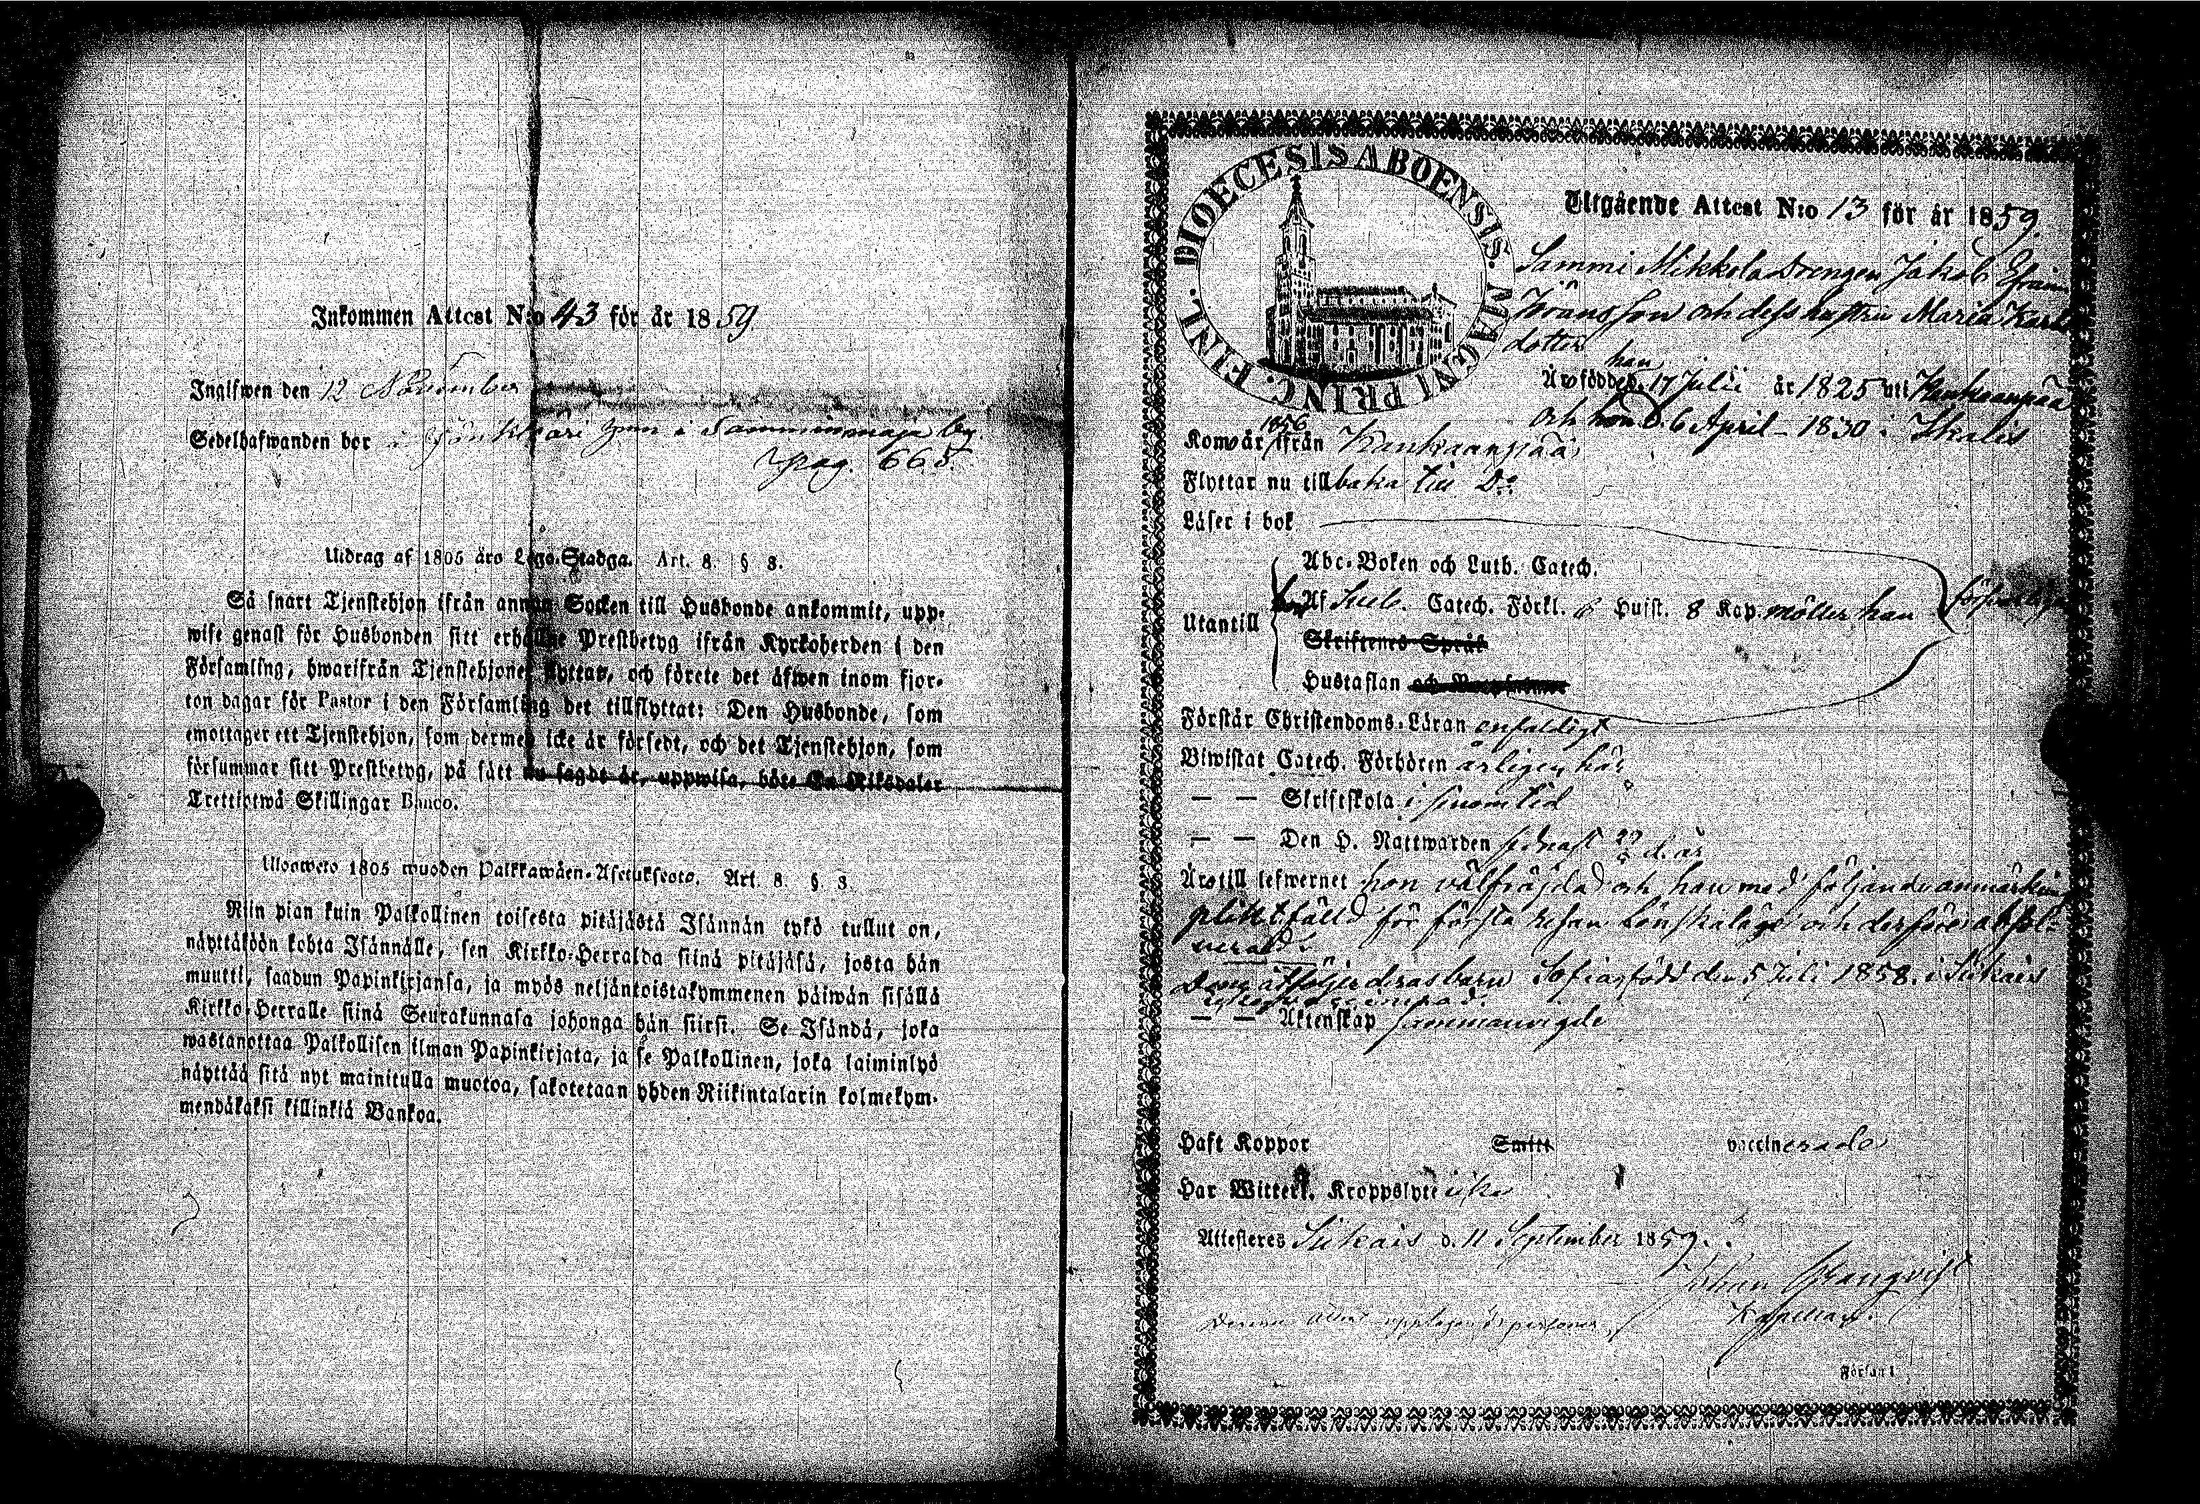 Inkommen Attest N:o 43 för år 1859
Ingifwen den 12 November
Sedelhafwanden bor i
pag. 665.
Utdrag af 1805 års Lego-Stadga. Art. 8. § 3.
Så snart Tjenstehjon ifrån annan Socken till Husbonde ankommit, upp-
wise genast för Husbonden sitt erhållne Prestbetyg ifrån Kyrkoherden i den
Församling, hwarifrån Tjenstehjonet flyttat, och förete det äfwen inom fjor-
ton dagar för Pastor i den Församling det tillflyttat: Den Husbonde, som
emottager ett Tjenstehjon, som dermed icke är försedt, och det Tjenstehjon, som
försummar sitt Prestbetyg, på sätt nu sagdt är, uppwisa, böte En Riksdaler
Trettiotwå Skillingar Banco.
Ulosweto 1805 wuoden Palkkawäen-Asetuksesta. Art. 8. §. 3.
Niin pian kuin Palkollinen toisesta pitäjästä Isännän tykö tullut on,
näyttäköön kohta Isännälle, sen Kirkko-Herralda siinä pitäjäsä, josta hän
muutti, saadun Papinkirjansa, ja myös neljäntoistakymmenen päiwän sisällä
Kirkko-Herralle siinä Seurakunnasa johonga hän siirsi. Se Isändä, joka
wastanottaa Palkollisen ilman Papinkirjata, ja se Palkollinen, joka laiminlyö
näyttää sitä nyt mainitulla muotoa, sakotetaan yhden Riikintalarin kolmekym-
mendäkaksi killinkiä Bankoa.
DIOECESIS ABOENSIS. MAGNI PRINC. FINL.
Utgående Attest N:o 13 för år 1859.
Sammi Mikkola Drengen Jakob Efraim
och dess hustru Maria Karls
dotter
han
Äro födde d. 17 Julii år 1825 uti Kankaanpää
och hon d. 6 April 1830 i Ikalis
1856
Kom år ifrån Kankaanpää
Flyttar nu tillbaka till Do
Läser i bok
Abc-Boken och Luth. Catech.
Utantill
Af Catech. Förkl. Hufst. 8 Kap. möller han
Skriftenes Språk
Hustaflan och
Förstår Christendoms-Läran enfaldigt
Biwistat Catech. Förhören årligen här
— — Skriftskola i sinom tid
— — Den H. Nattwarden sednast d. år
Äro till lefwernet hon välfräjdad och han med följande anmärkning
pliktfälld för första resan lönskaläge och derföre absol-
verad.
barn Sofia född den 5 Juli 1858 i Siikais
— — Äktenskap sammanvigde
Haft Koppor Smitt vaccinerade
Har Witterl. Kroppslyte icke
Attesteres Siikais d. 11 September 1859.
Johan
Kapellan.